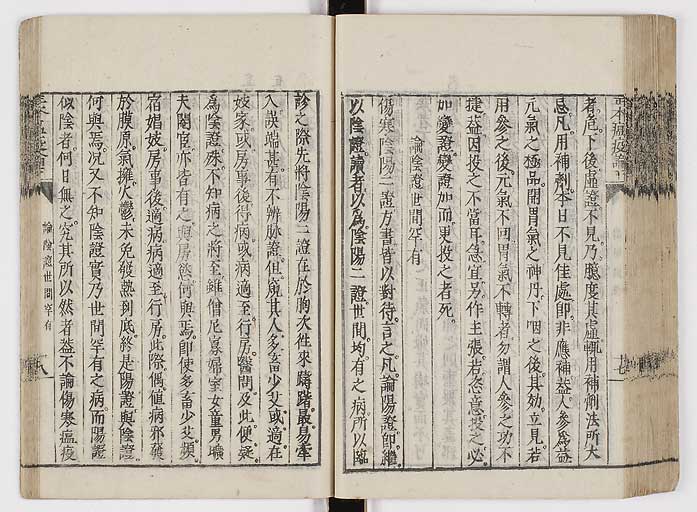 者危下後虛證不見乃臆度其虛輒用補劑法所大
忌凡用補劑本日不見佳處即非應補蓋人參為益
元氣之極品開胃氣之神丹下咽之後其効立見若
用參之後元氣不回胃氣不轉者勿謂人參之功不
捷蓋因投之不當耳急宜另作主張若恣意投之必
加變證變證加而更投之者死
論陰證世間罕有
傷寒陰陽二證方書皆以對待言之凡論陽證即繼
以陰證讀者以為陰陽二證世間均有之病所以臨
診之際先將陰陽二證在於胸次往來躊躇最易牽
入誤端甚有不辨脉證但窺其人多畜少艾或適在
妓家或房事後得病或病適至行房醫問及此便疑
為陰證殊不知病之將至雖僧尼寡婦室女童男曠
夫閹宦亦皆有之與房慾何與焉即使多畜少艾頻
宿娼妓房事後適病病適至行房此際偶值病邪發
於膜原氣擁火鬱未免發熱到底終是陽證與陰證
何與焉况又不知陰證實乃世間罕有之病而陽證
似陰者何日無之究其所以然者蓋不論傷寒瘟疫
論陰證世間罕有